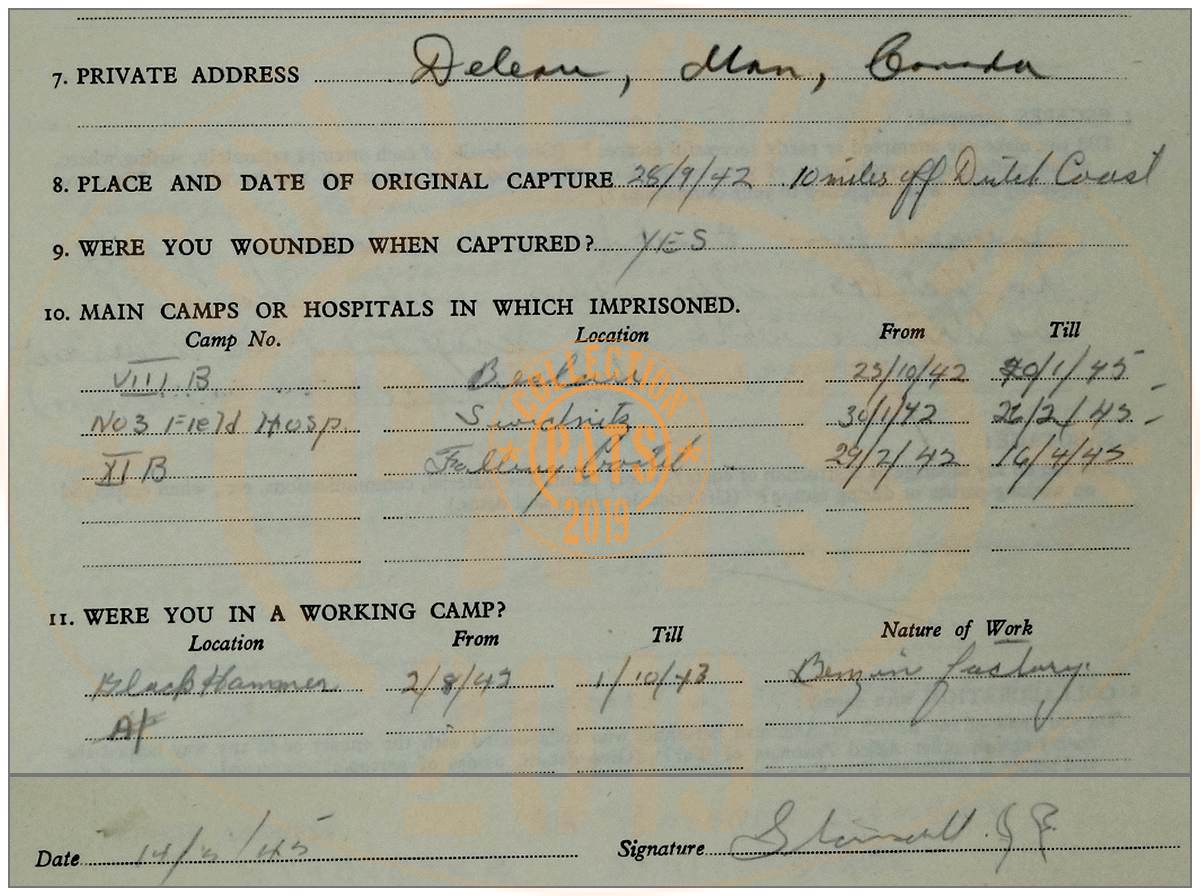 7. PRIVATE ADDRESS Deleau, Man, Canada
8. PLACE AND DATE OF ORIGINAL CAPTURE 28/9/42 10 miles off Dutch Coast
9. WERE YOU WOUNDED WHEN CAPTURED? YES
10. MAIN CAMPS OR HOSPITALS IN WHICH IMPRISONED.
Camp No. Location From Till
VIII B 23/10/42 20/1/45
No 3 Field Hosp. 30/1/42 26/2/45
XI B Falling 29/2/42 16/4/45
COLLECTION
PATS
2019
11. WERE YOU IN A WORKING CAMP?
Location From Till Nature of Work
BlackHammer 2/8/43 1/10/43 Benzin factory.
Date 14/5/45 Signature